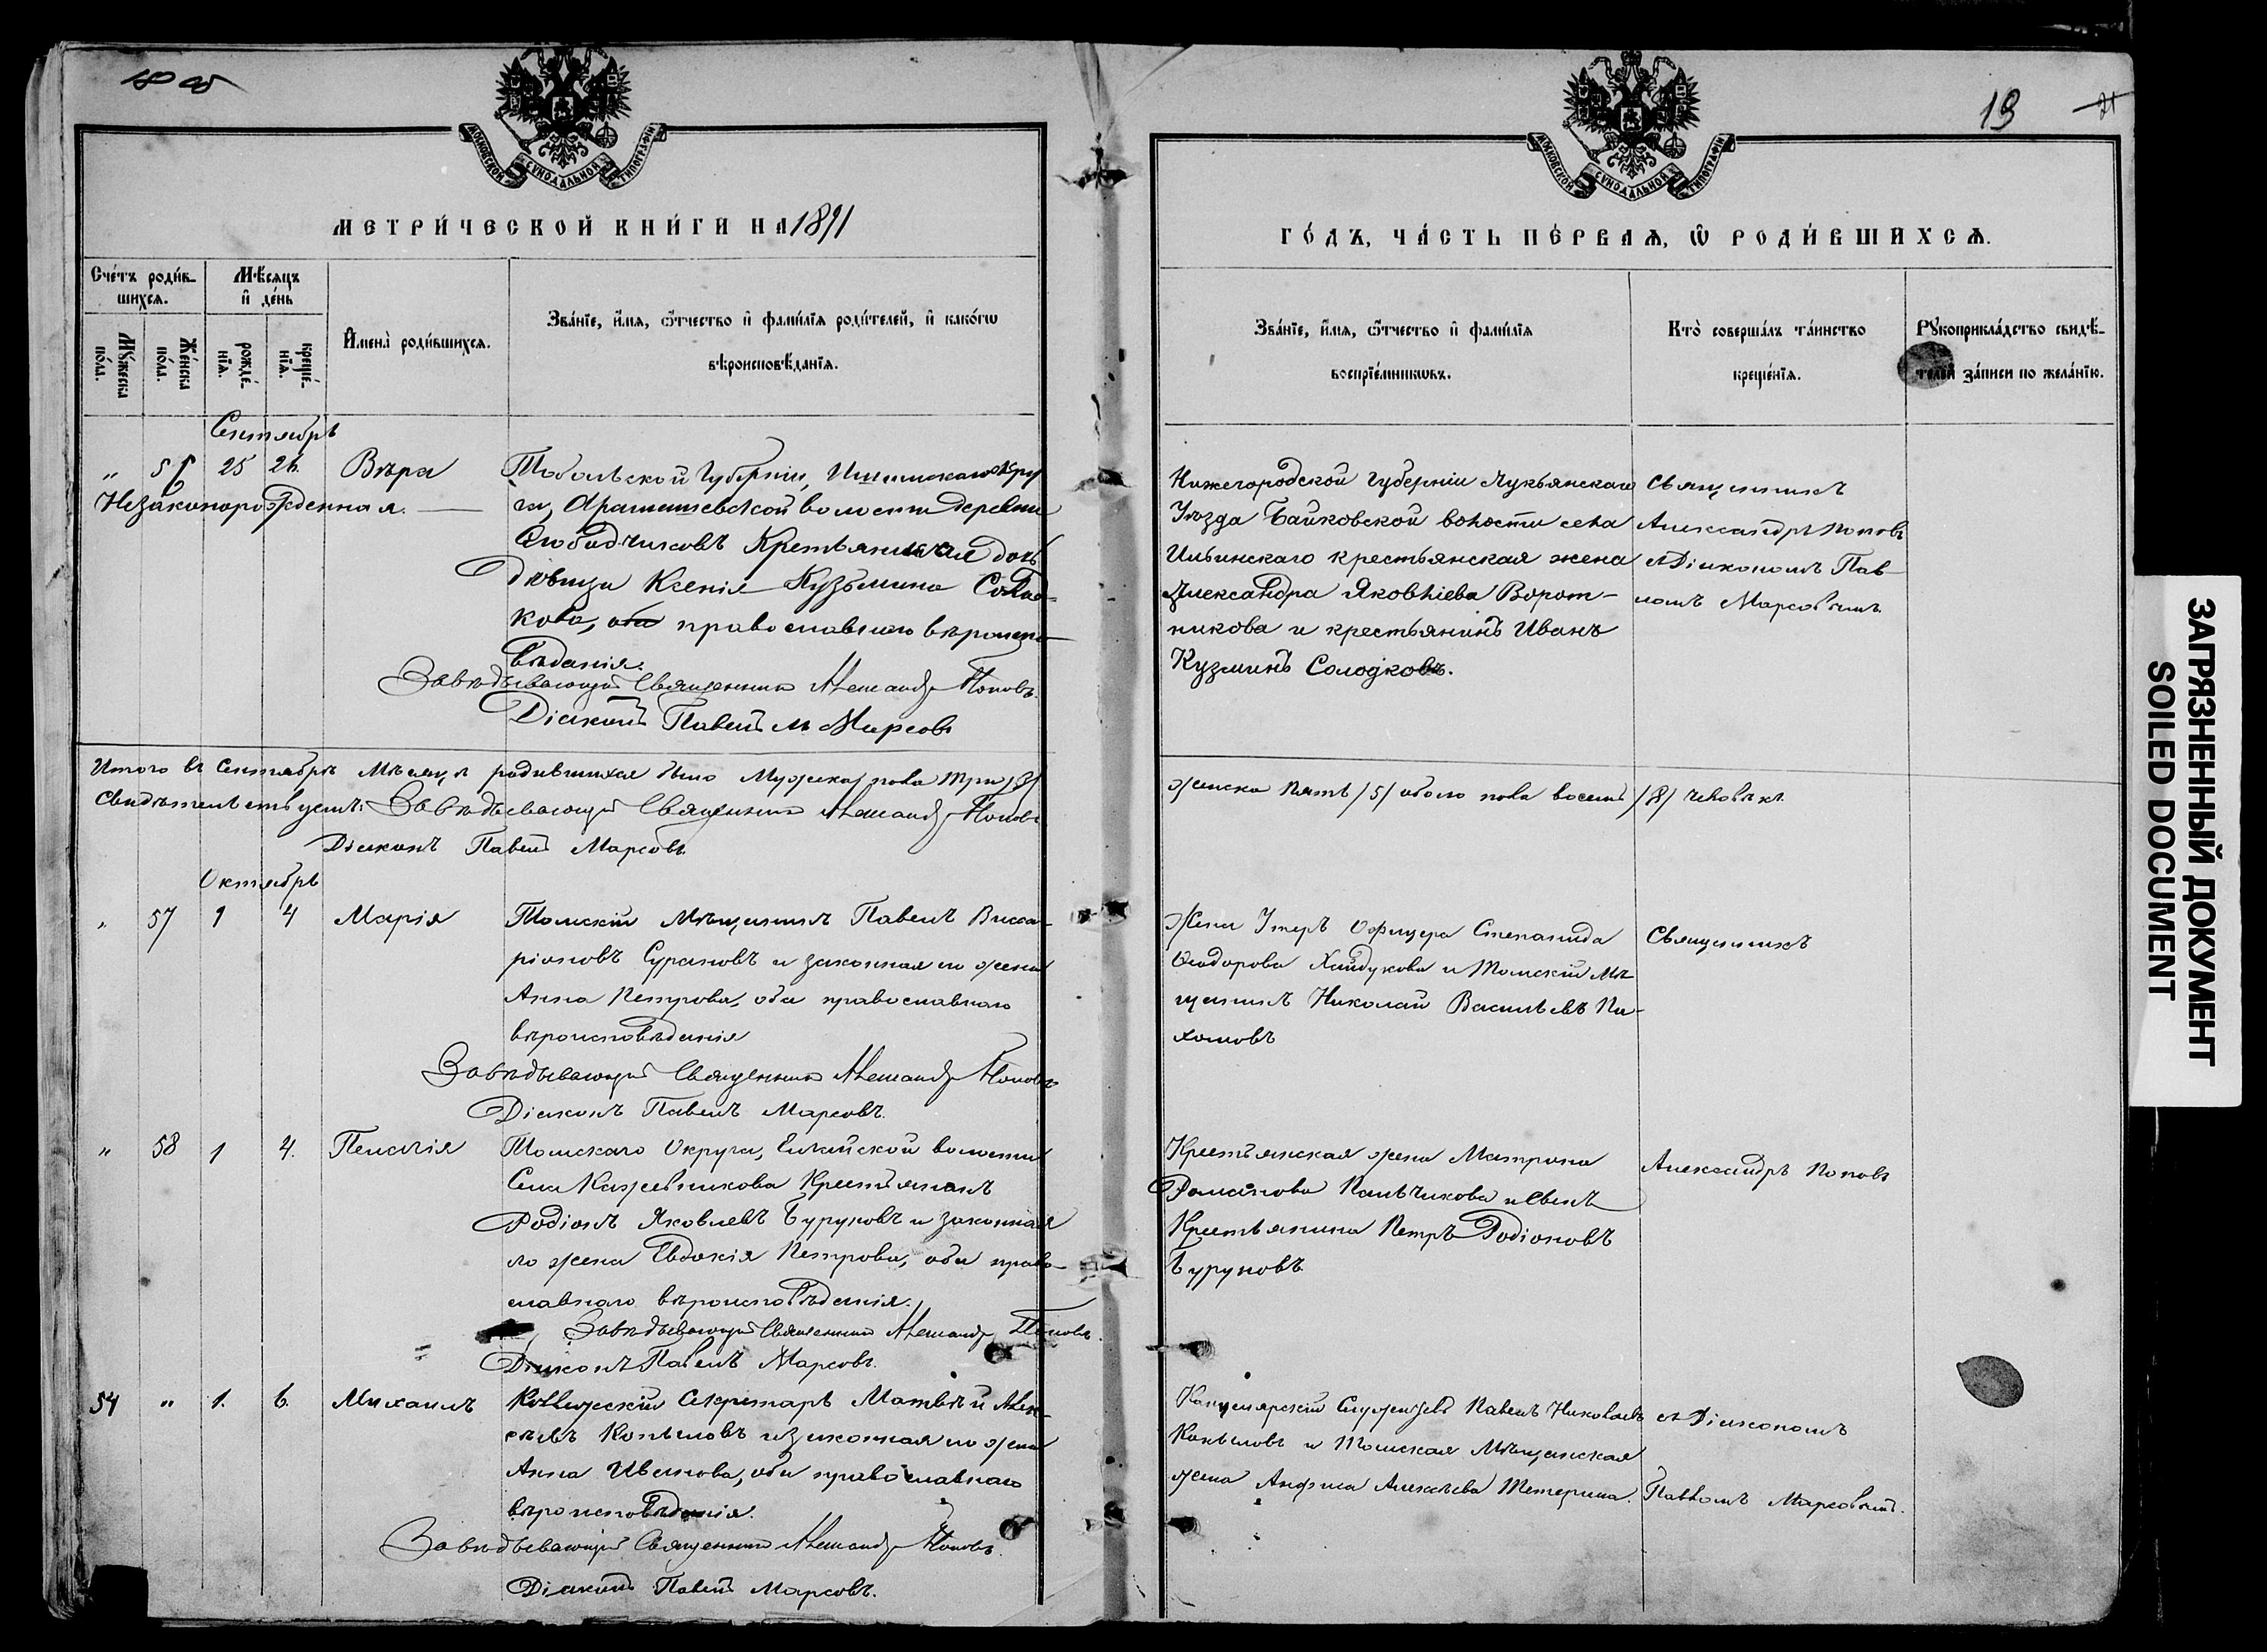 18 об
19
21
МОСКОВСКОЙ СѴНОДАЛЬНОЙ ТИПОГРАФІИ
МОСКОВСКОЙ СѴНОДАЛЬНОЙ ТИПОГРАФІИ
МЕТРИ́ЧЕСКОЙ КНИ́ГИ НА 1891
ГО́ДЪ, ЧА́СТЬ ПЕ́РВАѦ, Ѡ҆ РОДИ́ВШИХСѦ.
Сче́тъ роди́в-
шихсѧ.
Мѣ́сѧцъ
и҆ де́нь
Мꙋ́жеска по́ла.
Же́нска по́ла.
рожде́-
нїѧ.
креще́-
нїѧ.
И҆мена̀ роди́вшихсѧ.
Зва́нїе, и҆́мѧ, ѻ҆́тчество и҆ фами́лїѧ роди́телей, и҆ како́гѡ
вѣроисповѣ́данїѧ.
Зва́нїе, и҆́мѧ, ѻ҆́тчество и҆ фами́лїѧ
воспрїе́мникѡвъ.
Кто̀ соверша́лъ та́инство
креще́нїѧ.
Рꙋкоприкла́дство свидѣ́-
телей за́писи по жела́нїю.
Сентябрь
" 56 25 26. Вѣра
Незаконорожденная.
Тобольской Губерніи, Ишимскаго Окру
га, Арамашевской волости деревни
Слободчиковъ Крестьянская дочь
дѣвица Ксенія Кузьмина Солод-
кова, православнаго вѣроиспо-
вѣданія.
Завѣдывающій Священникъ Александръ Поповъ.
Діаконъ Павелъ Марсовъ
Нижегородской губерніи Лукьянскаго
Уѣзда Байковской волости села
Ильинскаго крестьянская жена
Александра Яковліева Ворот-
никова и крестьянинъ Иванъ
Кузминъ Солодковъ.
Священникъ
Александръ Поповъ
съ Діакономъ Пав-
ломъ Марсовымъ
Итого въ Сентябрѣ Мѣсяцѣ родившихся было Мужска пола три /3/
женска пять /5/ обоего пола восемь /8/ человѣкъ.
Свидѣтельствуемъ: Завѣдывающій Священникъ Александръ Поповъ
Діаконъ Павелъ Марсовъ
Октябрь
" 57 1 4 Марія
Томскій Мѣщанинъ Павелъ Висса-
ріоновъ Сурановъ и законная его жена
Анна Петрова, оба православнаго
вѣроисповѣданія
Завѣдывающій Священникъ Александръ Поповъ
Діаконъ Павелъ Марсовъ.
Жена Унтеръ Офицера Степанида
Ѳеодорова Хайдукова и Томскій Мѣ-
щанинъ Николай Васильевъ Па-
хомовъ
Священникъ
" 58 1 4. Пелагія
Томскаго Округа, Елгайской волости
Села Кожевникова Крестьянинъ
Родіонъ Яковлевъ Буруковъ и законная
его жена Евдокія Петрова, оба право-
славнаго вѣроисповѣданія.
Завѣдывающій Священникъ Александръ Поповъ.
Діаконъ Павелъ Марсовъ.
Крестьянская жена Матрона
Романова Пальчикова и сынъ
Крестьянина Петръ Родіоновъ
Буруковъ
Александръ Поповъ
54 " 1. 6. Михаилъ
Коллежскій Секретарь Матвѣй Алек-
сѣевъ Копыловъ и законная его жена
Анна Иванова, оба православнаго
вѣроисповѣданія.
Завѣдывающій Священникъ Александръ Поповъ.
Діаконъ Павелъ Марсовъ.
Канцелярскій Служитель Павелъ Николаевъ
Копыловъ и Томская Мѣщанская
жена Анфиса Алексѣева Тетерина.
съ Діакономъ
Павломъ Марсовымъ.
ЗАГРЯЗНЕННЫЙ ДОКУМЕНТ
SOILED DOCUMENT